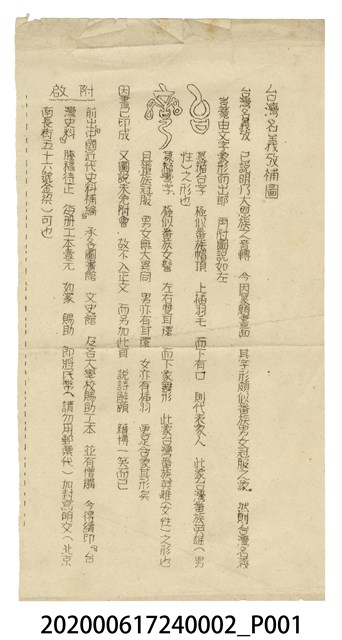 台灣名義攷補圖
台灣名義攷 已說明乃大鬼族之音轉 今因夏錦畫面 其字形頗似番族男女冠服之象 然則台灣名義
豈竟由文字象形而出耶 再附圖說如左
夏錦台字 極似番族帽頂 上插羽毛 而下有口 則代表象人 此象台灣番族英雄(男
性)之形也
夏錦灣字 極似番族女髻 左右雙耳環 而下象纏形 此象台灣番族英雌(女性)之形也
且番族冠服 男女無大異同 男亦有耳環 女亦有插羽 更足合象其形矣
因書已印成 又圖說未免附會 故不入正文 而另加此頁 說詩解頤 藉博一笑而已
附啟
前出『中國近代史料補編』 承各圖書館 文史館 及各大學校賜助工本 並有惜購 今得續印『台
灣史料』 謄稿待正 每冊工本壹元 如蒙 賜助 即將民幣(請勿用郵票代) 加封寫明交(北京
南長街五十六號金榮)可也
202000617240002_P001